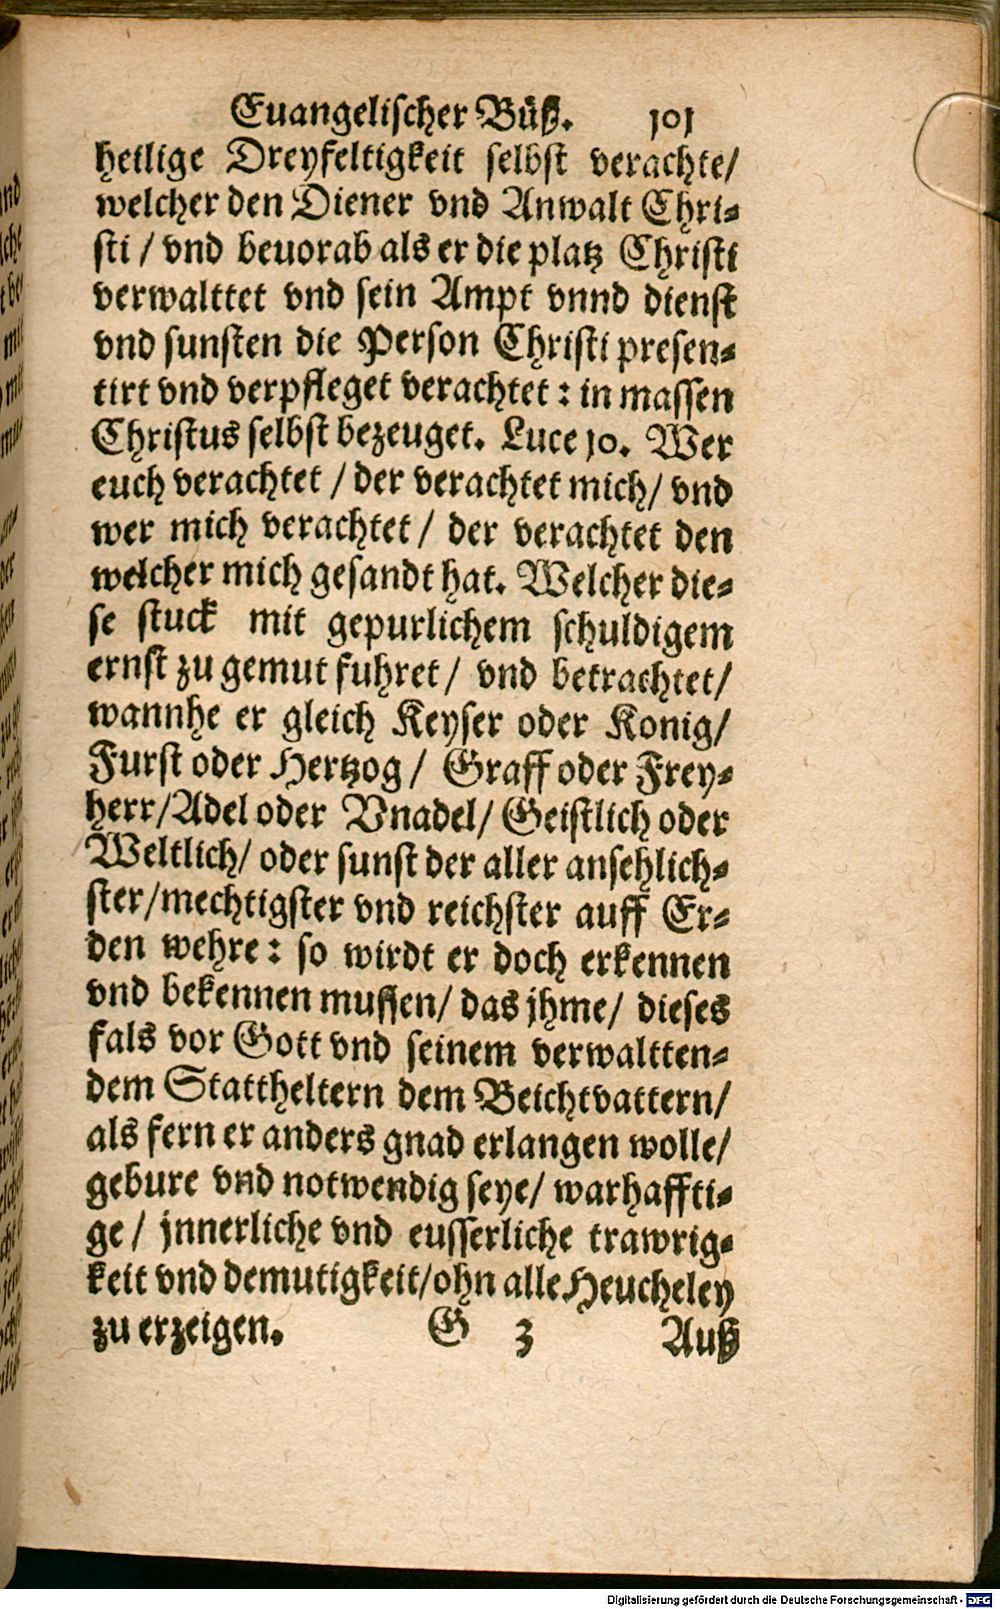 Euangelischer Büß. 101
heilige Dreyfeltigkeit selbst verachte/
welcher den Diener vnd Anwalt Chri-
sti / vnd beuorab als er die platz Christi
verwalttet vnd sein Ampt vnnd dienst
vnd sunsten die Person Christi presen-
tirt vnd verpfleget verachtet: in massen
Christus selbst bezeuget. Luce 10. Wer
euch verachtet / der verachtet mich/ vnd
wer mich verachtet / der verachtet den
welcher mich gesandt hat. Welcher die-
se stuck mit gepurlichem schuldigem
ernst zu gemut fuhret / vnd betrachtet/
wannhe er gleich Keyser oder Konig/
Furst oder Hertzog / Graff oder Frey-
herr/Adel oder Vnadel/ Geistlich oder
Weltlich/ oder sunst der aller ansehlich-
ster/mechtigster vnd reichster auff Er-
den wehre: so wirdt er doch erkennen
vnd bekennen mussen/ das jhme/ dieses
fals vor Gott vnd seinem verwaltten-
dem Stattheltern dem Beichtvattern/
als fern er anders gnad erlangen wolle/
gebure vnd notwendig seye/ warhaffti-
ge / jnnerliche vnd eusserliche trawrig-
keit vnd demutigkeit/ohn alle Heucheley
zu erzeigen. G 3 Auß
Digitalisierung gefördert durch die Deutsche Forschungsgemeinschaft - DFG